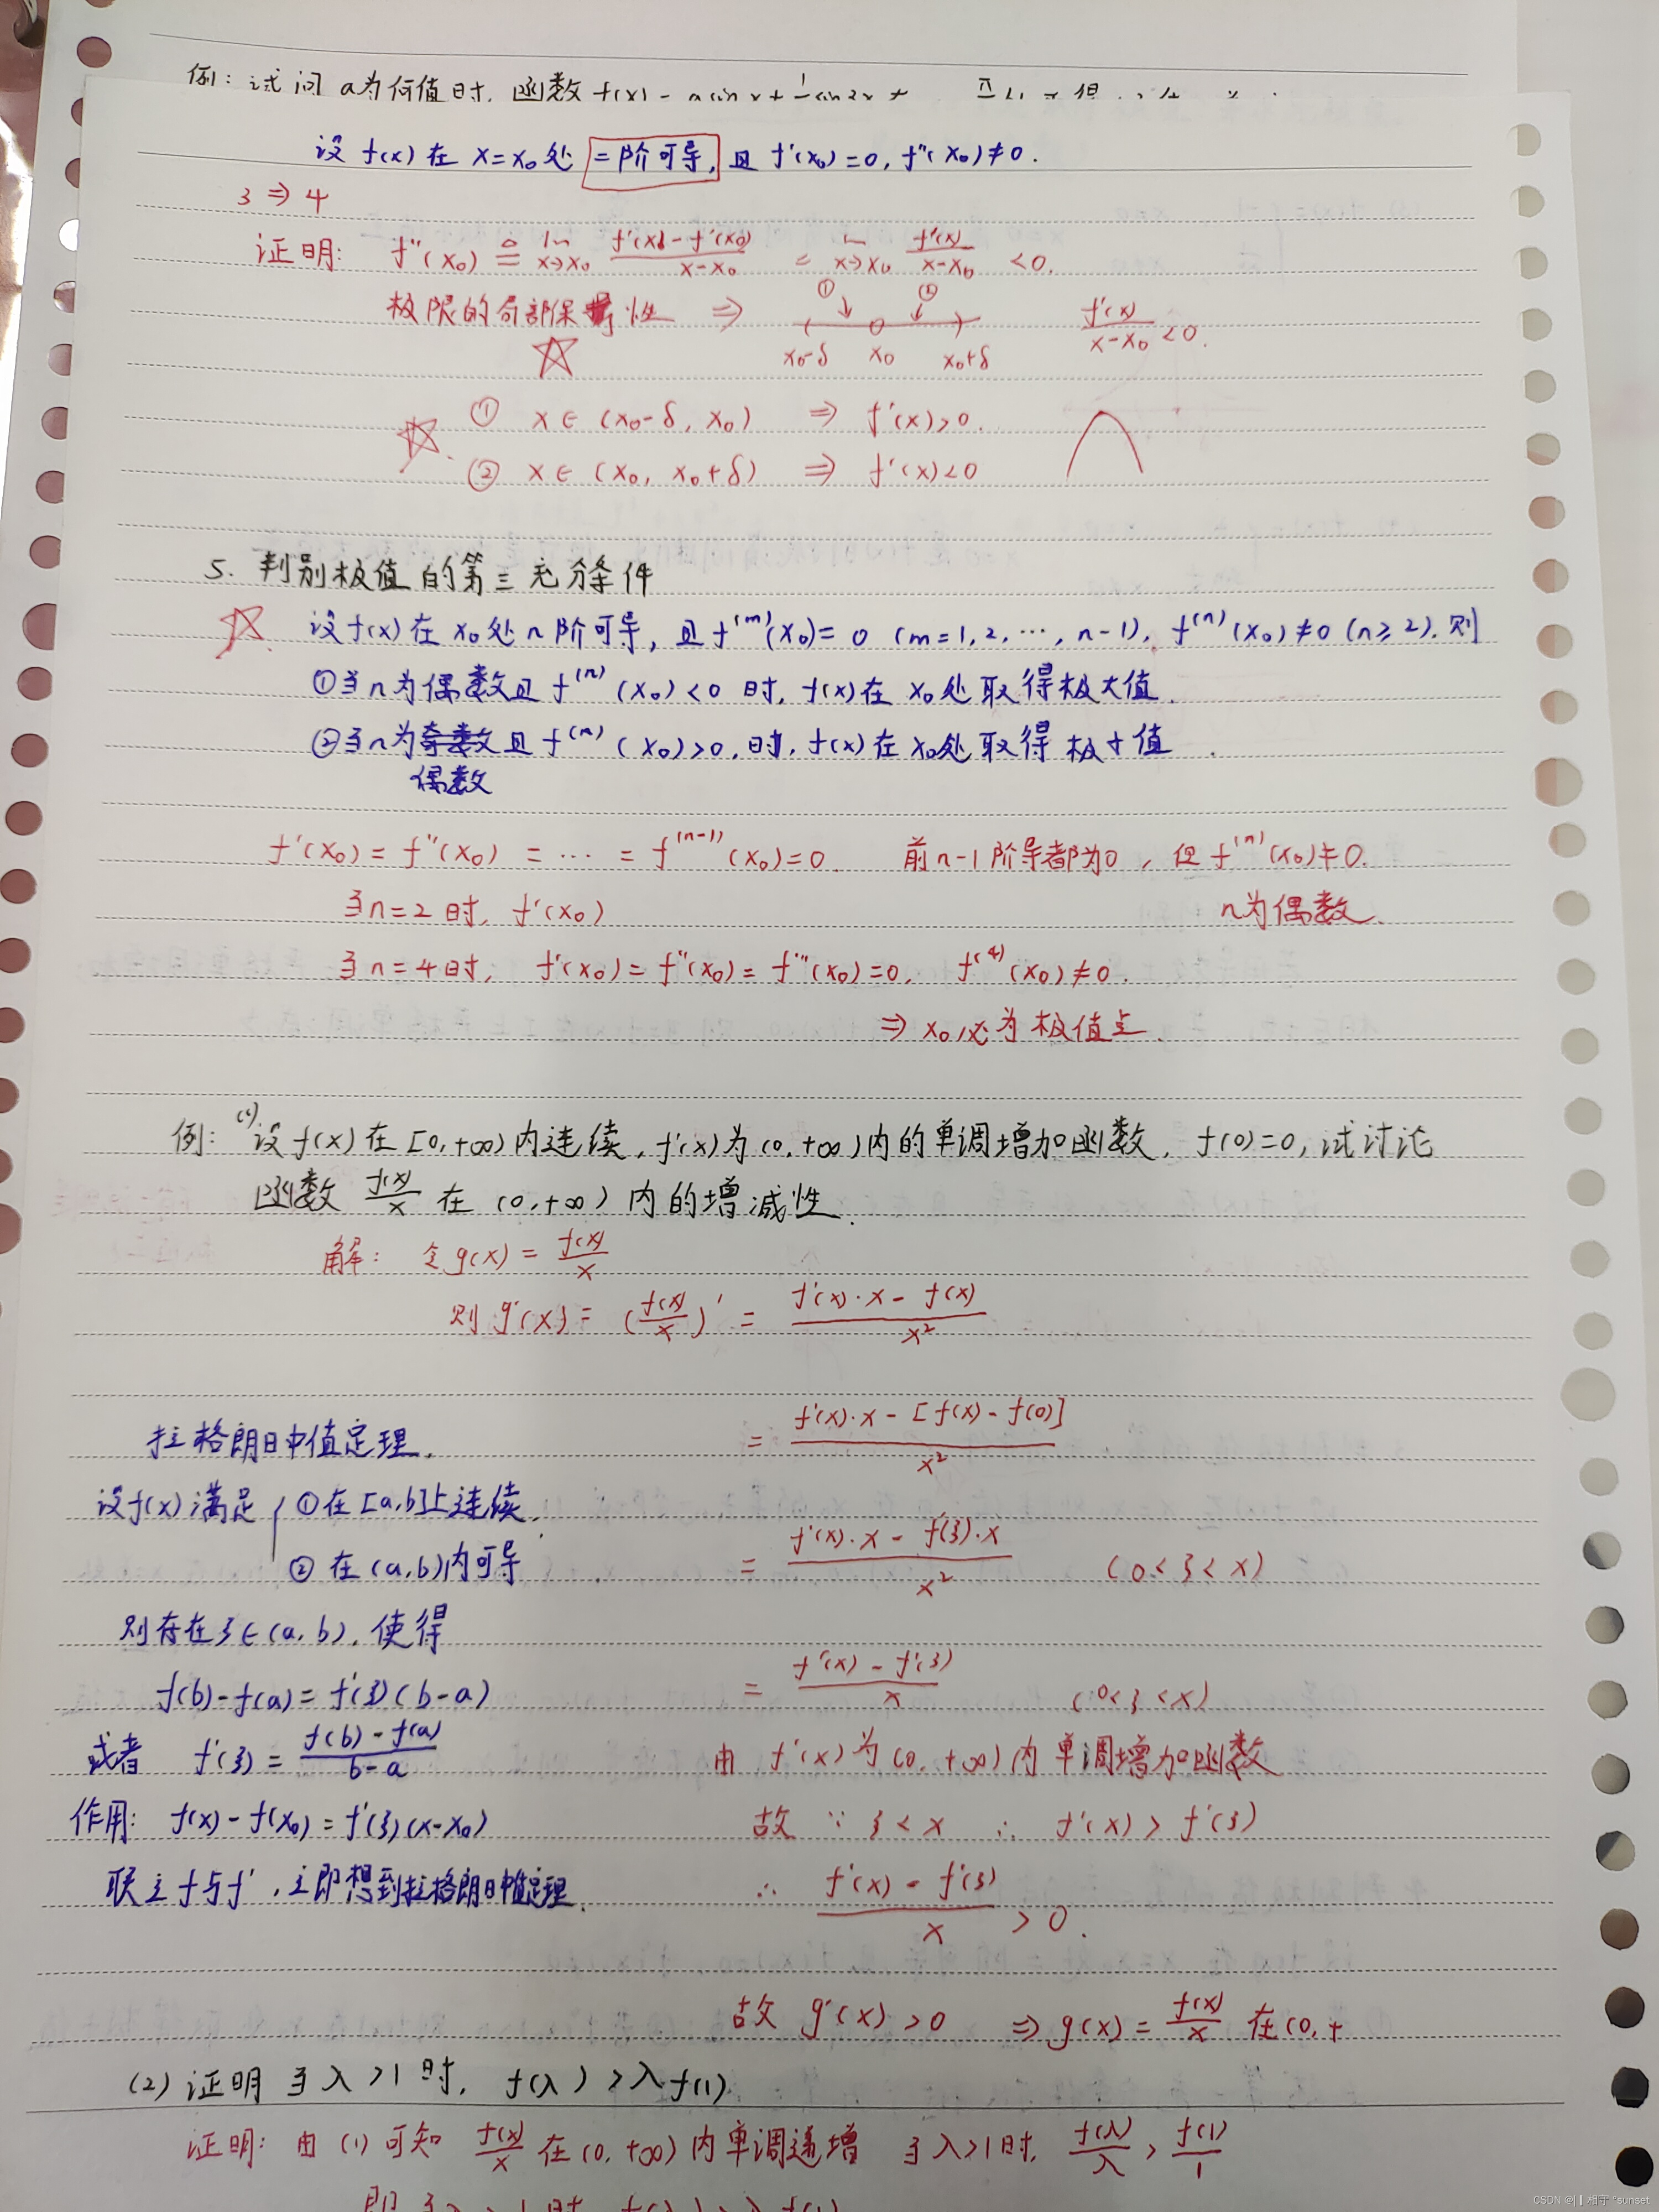 例：试问 a为何值时，函数 f(x) = a sin x + 1/3 sin 3x
设 f(x) 在 x=x₀ 处 二阶可导，且 f'(x₀)=0, f''(x₀)≠0.
3 ⇒ 4
证明： f''(x₀) ≜ lim x→x₀ (f'(x)-f'(x₀))/(x-x₀) = lim x→x₀ f'(x)/(x-x₀) <0.
① ②
极限的局部保号性 ⇒ f'(x)/(x-x₀) <0.
x₀-δ x₀ x₀+δ
① x∈(x₀-δ, x₀) ⇒ f'(x)>0.
② x∈(x₀, x₀+δ) ⇒ f'(x)<0
5. 判别极值的第三充分条件
设f(x)在 x₀处 n阶可导，且 f⁽ᵐ⁾(x₀)= 0 (m=1,2,…,n-1), f⁽ⁿ⁾(x₀)≠0 (n≥2). 则
①当n为偶数且 f⁽ⁿ⁾(x₀)<0 时, f(x)在 x₀处 取得极大值.
②当n为奇数且 f⁽ⁿ⁾(x₀)>0, 时, f(x)在 x₀处 取得 极小值.
偶数
f'(x₀) = f''(x₀) = … = f⁽ⁿ⁻¹⁾(x₀)=0. 前n-1阶导都为0，但 f⁽ⁿ⁾(x₀)≠0.
当n=2时, f'(x₀) n为偶数.
当n=4时, f'(x₀)=f''(x₀)=f'''(x₀)=0, f⁽⁴⁾(x₀)≠0.
⇒ x₀必为极值点.
例：(1)设f(x)在[0,+∞)内连续, f'(x)为(0,+∞)内的单调增加函数, f(0)=0, 试讨论
函数 f(x)/x 在 (0,+∞) 内的增减性.
解： 令g(x) = f(x)/x
则 g'(x) = (f(x)/x)' = (f'(x)·x - f(x))/x²
= (f'(x)·x - [f(x)-f(0)])/x²
拉格朗日中值定理.
设f(x)满足 ①在[a,b]上连续.
② 在(a,b)内可导
= (f'(x)·x - f'(ξ)·x)/x² (0<ξ<x)
则存在ξ∈(a,b), 使得
f(b)-f(a)=f'(ξ)(b-a)
= (f'(x)-f'(ξ))/x (0<ξ<x)
或者 f'(ξ)=(f(b)-f(a))/(b-a)
由 f'(x)为(0,+∞)内单调增加函数
作用: f(x)-f(x₀)=f'(ξ)(x-x₀)
故 ∵ ξ<x ∴ f'(x)>f'(ξ)
联立f与f', 立即想到拉格朗日中值定理.
∴ (f'(x)-f'(ξ))/x >0.
故 g'(x)>0 ⇒ g(x)=f(x)/x 在(0,+
(2) 证明 当λ>1时, f(λ)>λf(1)
证明: 由(1)可知 f(x)/x 在(0,+∞)内单调递增 当λ>1时, f(λ)/λ > f(1)/1
即当λ>1时, f(λ)>λf(1)
CSDN @|▎相守°sunset